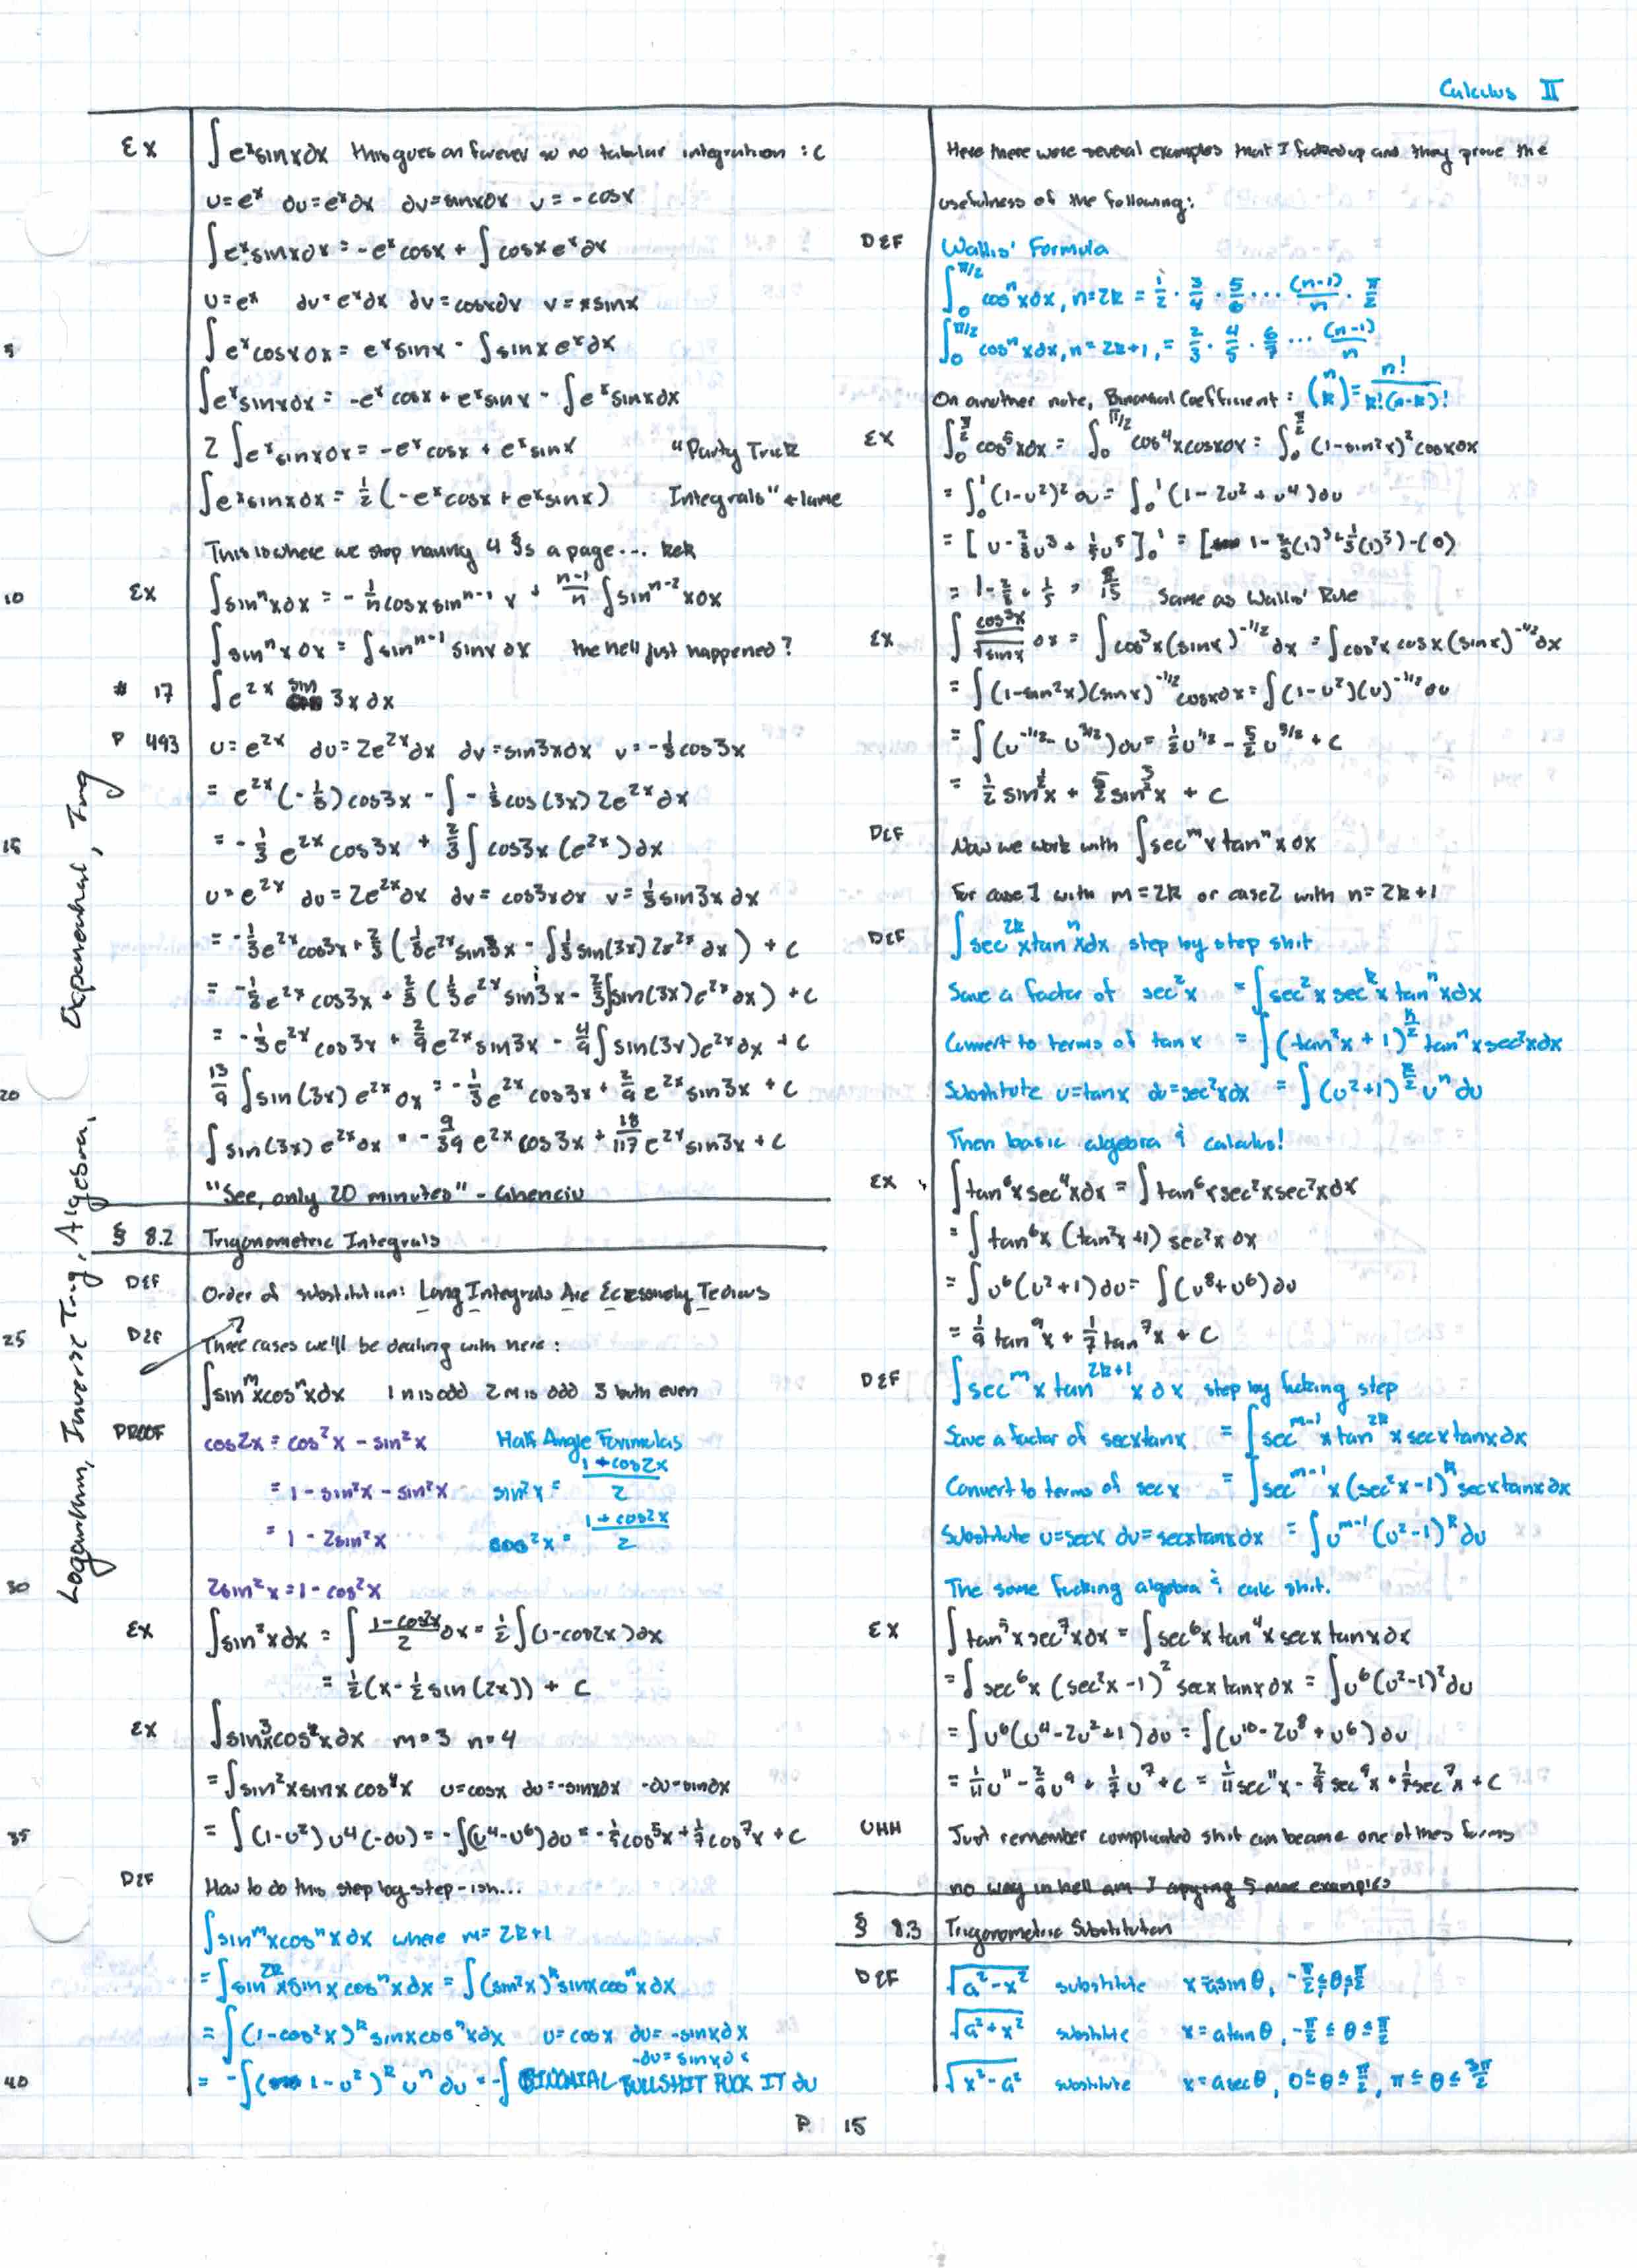 Calculus II
Ex ∫e^x sinxdx this goes on forever so no tabular integration :C
u=e^x du=e^x dx dv=sinxdx v=-cosx
∫e^x sinxdx = -e^x cosx + ∫cosx e^x dx
u=e^x du=e^x dx dv=cosxdx v=sinx
5 ∫e^x cosxdx = e^x sinx - ∫sinx e^x dx
∫e^x sinxdx = -e^x cosx + e^x sinx - ∫e^x sinxdx
2∫e^x sinxdx = -e^x cosx + e^x sinx "Party Trick
∫e^x sinxdx = 1/2(-e^x cosx + e^x sinx) Integrals" ←lame
This is where we stop having 4 §s a page... kek
10 Ex ∫sin^n xdx = -1/n cosx sin^(n-1) x + (n-1)/n ∫sin^(n-2) xdx
∫sin^n xdx = ∫sin^(n-1) sinxdx the hell just happened?
# 17 ∫e^(2x) sin 3xdx
P 493 u=e^(2x) du=2e^(2x)dx dv=sin3xdx v=-1/3 cos3x
= e^(2x)(-1/3)cos3x - ∫-1/3 cos(3x)2e^(2x)dx
15 = -1/3 e^(2x) cos3x + 2/3∫cos3x(e^(2x))dx
u=e^(2x) du=2e^(2x)dx dv=cos3xdx v=1/3 sin3xdx
= -1/3 e^(2x) cos3x + 2/3(1/3 e^(2x) sin3x - ∫1/3 sin(3x)2e^(2x)dx) + C
= -1/3 e^(2x) cos3x + 2/3(1/3 e^(2x) sin3x - 2/3∫sin(3x)e^(2x)dx) + C
= -1/3 e^(2x) cos3x + 2/9 e^(2x) sin3x - 4/9∫sin(3x)e^(2x)dx + C
20 13/9 ∫sin(3x)e^(2x)dx = -1/3 e^(2x) cos3x + 2/9 e^(2x) sin3x + C
∫sin(3x)e^(2x)dx = -9/39 e^(2x) cos3x + 18/117 e^(2x) sin3x + C
"See, only 20 minutes" - Ghenciu
§ 8.2 Trigonometric Integrals
DEF Order of substitution: Long Integrals Are Tedious
25 DEF Three cases we'll be dealing with here:
∫sin^m xcos^n xdx 1 n is odd 2 m is odd 3 both even
PROOF cos2x = cos²x - sin²x Half Angle Formulas
= 1 - sin²x - sin²x sin²x = (1+cos2x)/2
= 1 - 2sin²x cos²x = (1+cos2x)/2
30 2sin²x = 1 - cos²x
Ex ∫sin²xdx = ∫(1-cos2x)/2 dx = 1/2∫(1-cos2x)dx
= 1/2(x - 1/2 sin(2x)) + C
Ex ∫sin³xcos⁴xdx m=3 n=4
= ∫sin²xsinxcos⁴x u=cosx du=-sinxdx -du=sindx
35 = ∫(1-u²)u⁴(-du) = -∫(u⁴-u⁶)du = -1/5 cos⁵x + 1/7 cos⁷x + C
DEF How to do this step by step-ish...
∫sin^m xcos^n xdx where m=2k+1
= ∫sin^(2k) xsinxcos^n xdx = ∫(sin²x)^k sinxcos^n xdx
= ∫(1-cos²x)^k sinxcos^n xdx u=cosx du=-sinxdx
-du=sinxdx
40 = -∫(1-u²)^k u^n du = -∫ BINOMIAL BULLSHIT FUCK IT du
Logarithm, Inverse Trig, Algebra, Exponential, Trig
Here there were several examples that I fucked up and they prove the
usefulness of the following:
DEF Wallis' Formula
∫_0^(π/2) cos^n xdx, n=2k = 1/2 · 3/4 · 5/6 ... (n-1)/n · π/2
∫_0^(π/2) cos^n xdx, n=2k+1, = 2/3 · 4/5 · 6/7 ... (n-1)/n
On another note, Binomial Coefficient: (n k) = n!/(k!(n-k)!)
Ex ∫_0^(π/2) cos⁵xdx = ∫_0^(π/2) cos⁴xcosxdx = ∫_0^(π/2) (1-sin²x)²cosxdx
= ∫_0^1 (1-u²)²du = ∫_0^1 (1-2u²+u⁴)du
= [u - 2/3 u³ + 1/5 u⁵]_0^1 = [1 - 2/3(1)³ + 1/5(1)⁵) - (0)
= 1 - 2/3 + 1/5 = 8/15 Same as Wallis' Rule
Ex ∫cos³x/√sinx dx = ∫cos³x(sinx)^(-1/2)dx = ∫cos²xcosx(sinx)^(-1/2)dx
= ∫(1-sin²x)(sinx)^(-1/2)cosxdx = ∫(1-u²)(u)^(-1/2)du
= ∫(u^(-1/2) - u^(3/2))du = 1/2 u^(1/2) - 5/2 u^(5/2) + C
= 1/2 sin^(1/2)x + 5/2 sin^(5/2)x + C
DEF Now we work with ∫sec^m xtan^n xdx
For case 1 with m=2k or case2 with n=2k+1
DEF ∫sec^(2k) xtan^n xdx step by step shit
Save a factor of sec²x = ∫sec²xsec^k xtan^n xdx
Convert to terms of tanx = ∫(tan²x+1)^(k/2) tan^n xsec²xdx
Substitute u=tanx du=sec²xdx = ∫(u²+1)^(k/2) u^n du
Then basic algebra & calculus!
Ex ∫tan⁶xsec⁴xdx = ∫tan⁶xsec²xsec²xdx
= ∫tan⁶x(tan²x+1)sec²xdx
= ∫u⁶(u²+1)du = ∫(u⁸+u⁶)du
= 1/9 tan⁹x + 1/7 tan⁷x + C
DEF ∫sec^m xtan^(2k+1) xdx step by fucking step
Save a factor of secxtanx = ∫sec^(m-1) xtan^(2k) xsecxtanxdx
Convert to terms of secx = ∫sec^(m-1) x(sec²x-1)^k secxtanxdx
Substitute u=secx du=secxtanxdx = ∫u^(m-1)(u²-1)^k du
The same fucking algebra & calc shit.
Ex ∫tan⁵xsec⁷xdx = ∫sec⁶xtan⁴xsecxtanxdx
= ∫sec⁶x(sec²x-1)²secxtanxdx = ∫u⁶(u²-1)²du
= ∫u⁶(u⁴-2u²+1)du = ∫(u¹⁰-2u⁸+u⁶)du
= 1/11 u¹¹ - 2/9 u⁹ + 1/7 u⁷ + C = 1/11 sec¹¹x - 2/9 sec⁹x + 1/7 sec⁷x + C
UHH Just remember complicated shit can become one of these forms
no way in hell am I copying 5 more examples
§ 8.3 Trigonometric Substitution
DEF √(a²-x²) substitute x=asinθ, -π/2≤θ≤π/2
√(a²+x²) substitute x=atanθ, -π/2≤θ≤π/2
√(x²-a²) substitute x=asecθ, 0≤θ≤π/2, π≤θ≤3π/2
P. 15